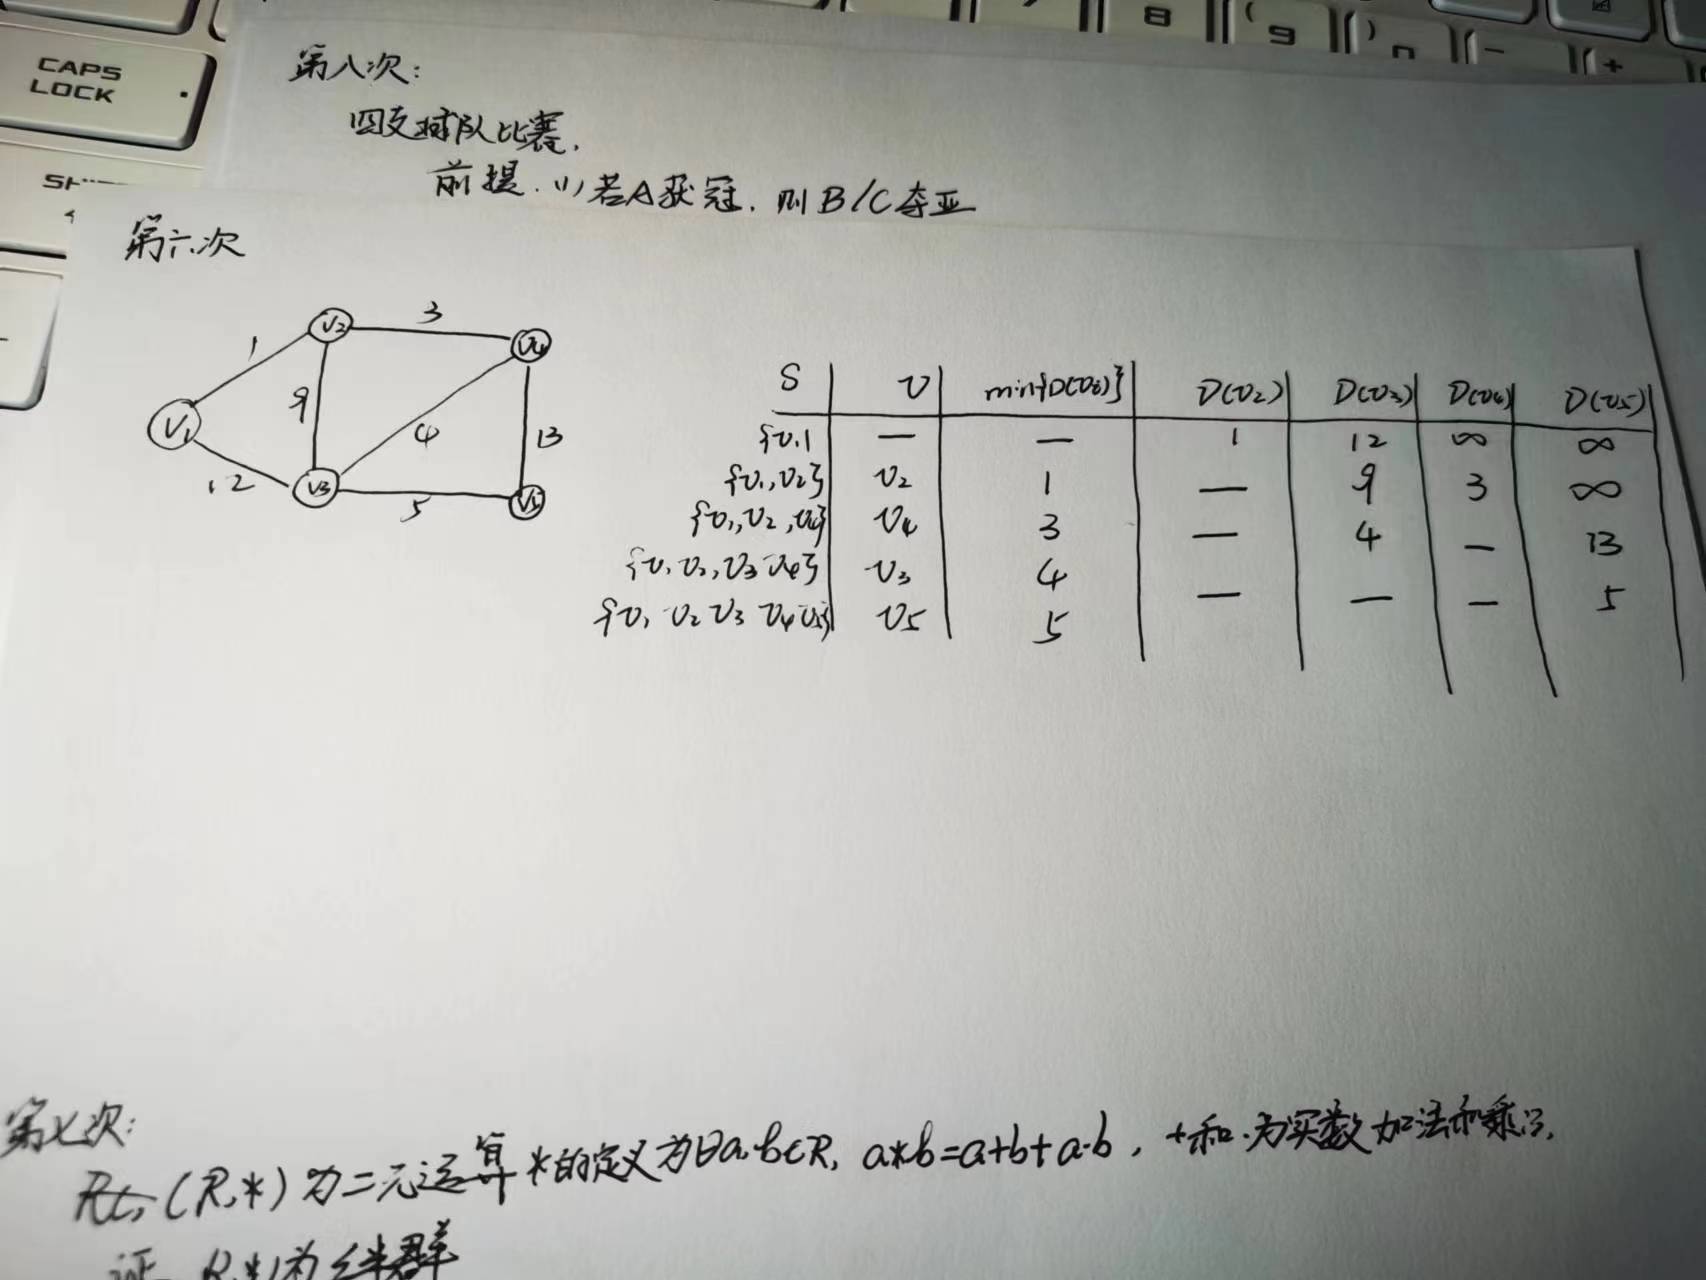 CAPS
LOCK
8
( 9
) 0
-
+
第八次:
四支球队比赛,
前提.(1)若A获冠,则B/C夺亚
第六次
V1 V2 V3 V4 V5
1 3 9 4 13 12 5
S V min{D(vi)} D(v2) D(v3) D(v4) D(v5)
{v1} — — 1 12 ∞ ∞
{v1,v2} v2 1 — 9 3 ∞
{v1,v2,v4} v4 3 — 4 — 13
{v1 v2,v3 v4} v3 4 — — — 5
{v1 v2 v3 v4 v5} v5 5
第七次:
(R,*)为二元运算*的定义为∀a,b∈R, a*b=a+b+a·b, +和·为实数加法和乘法,
证 R,*)为
群